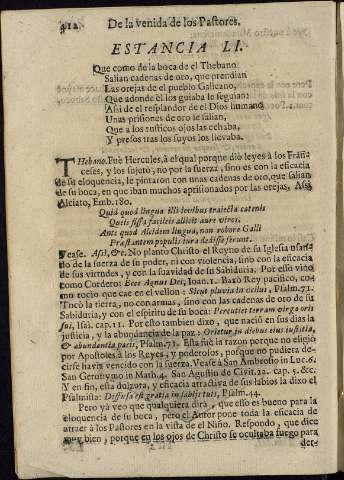 412. De la venida de los Pastores.
ESTANCIA LI.
Que como de la boca de el Thebano
Salian cadenas de oro, que prendian
Las orejas de el pueblo Galicano,
Que adonde èl los guiaba le seguian:
Assi de el resplandor de el Dios humano
Unas prisiones de oro le salian,
Que a los rusticos ojos las echaba,
Y presos tras los suyos los llevaba.
THebano. Fuè Hercules, à el qual porque diò leyes à los Franceses,
y los sujetò, no por la fuerza, sino es con la eficacia
de su eloquencia, le pintaron con unas cadenas de oro, que salian
de su boca, en que iban muchos aprisionados por las orejas, Assi
Alciato, Emb. 180.
Quid quod lingua illi levibus traiecta catenis
Queis fissa facileis allicit aure viros?
Ante quod Alcidem lingua, non robore Galli
Præstantem populis iura dedisse ferunt.
Vease. Assi, &c. No planto Christo el Reyno de su Iglesia usando
de la fuerza de su poder, ni con violencia, sino con la eficacia
de sus virtudes, y con la suavidad de su Sabiduria. Por esso vino
como Cordero: Ecce Agnus Dei; Ioann. 1. Baxò Rey pacifico, como
rocio que cae en el vellon: Sicut pluvia in vellus, Psalm. 71.
Tocò la tierra, no con armas, sino con las cadenas de oro de su
Sabiduria, y con el espiritu de su boca: Percutiet terram virga oris
sui, Isai. cap. 11. Por esto tambien dixo, que naciò en sus dias la
justicia, y la abundancia de la paz. Orietur in diebus eius iustitia,
& abundantia pacis, Psalm. 71. Esta fuè la razon porque no eligiò
por Apostoles à los Reyes, y poderosos, porque no pudiera decirse
havia vencido con la fuerza. Vease à San Ambrosio in Luc. 6.
San Geronymo in Math. 4. San Agustin de Civit. 22. cap. 5. &c.
Y en fin, esta dulzura, y eficacia atractiva de sus labios la dixo el
Psalmista: Diffusa est gratia in labijs tuis, Psalm. 44.
Pero yà veo que qualquiera dirà, que esso es bueno para la
eloquencia de su boca, pero el Autor pone toda la eficacia de
atraer à los Pastores en la vista de el Niño. Respondo, que dice
muy bien, porque en los ojos de Christo se ocultaba fuego para
der-